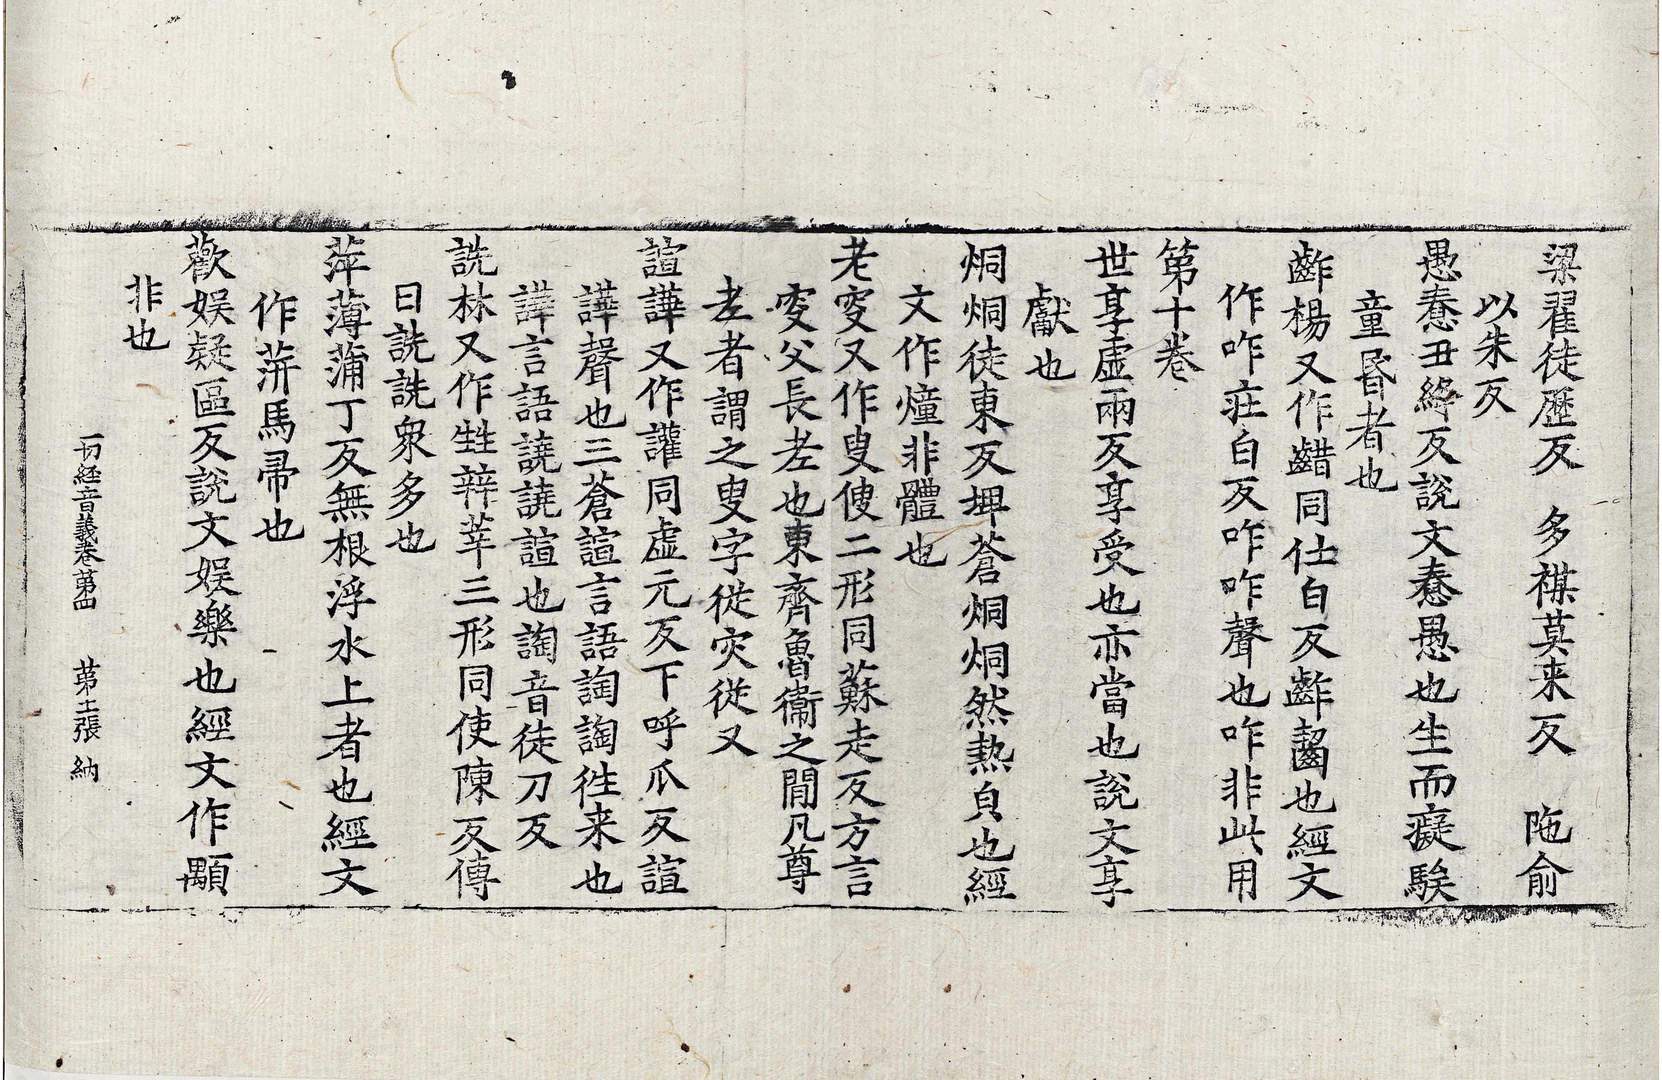 梁翟徒歷反　多禖莫来反　陁俞
以朱反
愚憃丑絳反說文憃愚也生而癡騃
童昬者也
齰楊又作齰同仕白反齰齧也經文
作咋莊白反咋咋聲也咋非此用
第十卷
世享虛兩反享受也亦當也說文享
獻也
烔烔徒東反埤蒼烔烔然熱皃也經
文作爞非體也
老叜又作叟傁二形同蘇走反方言
叜父長老也東齊魯衞之閒凡尊
老者謂之叟字從灾從又
諠譁又作讙同虛元反下呼瓜反諠
譁聲也三蒼諠言語䛬䛬徃来也
譁言語譊譊諠也䛬音徒刀反
詵林又作甡㛙莘三形同使陳反傳
曰詵詵衆多也
萍薄蒲丁反無根浮水上者也經文
作蓱馬帚也
歡娱疑區反說文娱樂也經文作顒
非也
一切経音義卷苐四　苐十二張　納